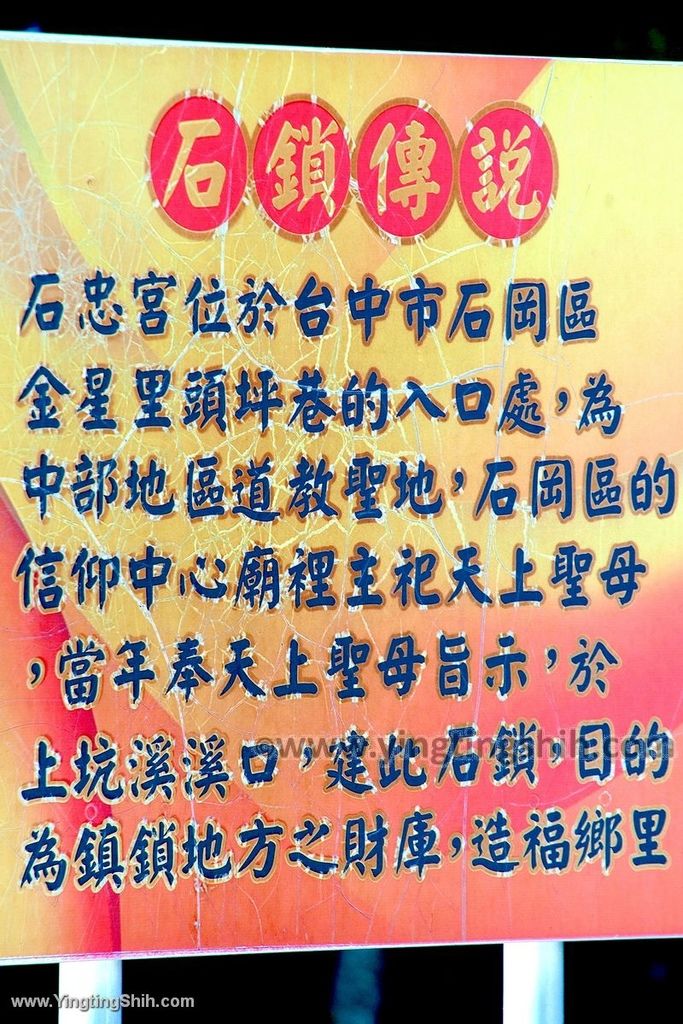 石鎖傳說
石忠宮位於台中市石岡區
金星里頭坪巷的入口處，為
中部地區道教聖地，石岡區的
信仰中心廟裡主祀天上聖母
，當年奉天上聖母旨示，於
上坑溪溪口，建此石鎖，目的
為鎮鎖地方之財庫，造福鄉里
©www.yingtingShih.com
www.YingtingShih.com